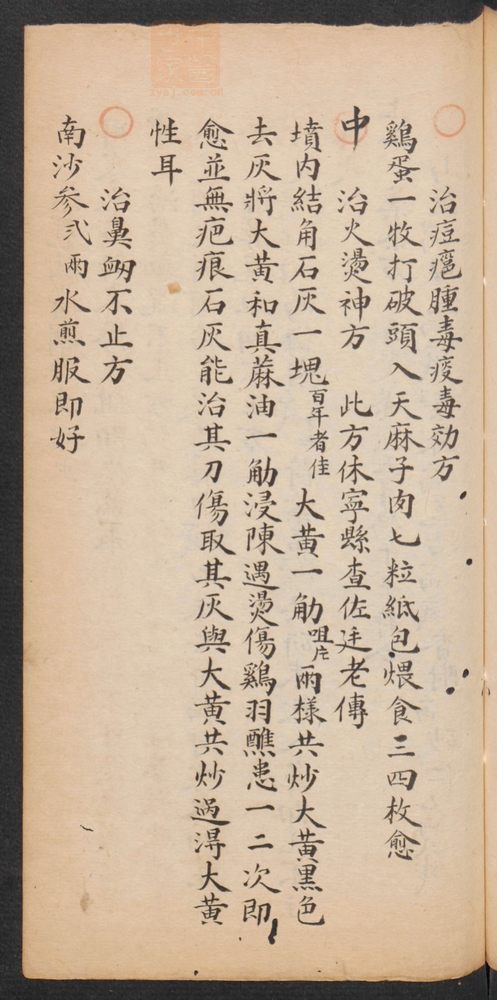 治痘癍腫毒疫毒効方
鷄蛋一牧打破頭入天麻子肉七粒紙包煨食三四枚愈
中 治火燙神方 此方休寧縣查佐廷老傳
墳内結角石灰一塊百年者佳大黄一觔咀片兩樣共炒大黄黒色
去灰將大黄和真蔴油一觔浸陳遇燙傷鷄羽醮患一二次即
愈並無疤痕石灰能治其刀傷取其灰與大黄共炒過淂大黄
性耳
治鼻衂不止方
南沙参弍兩水煎服即好